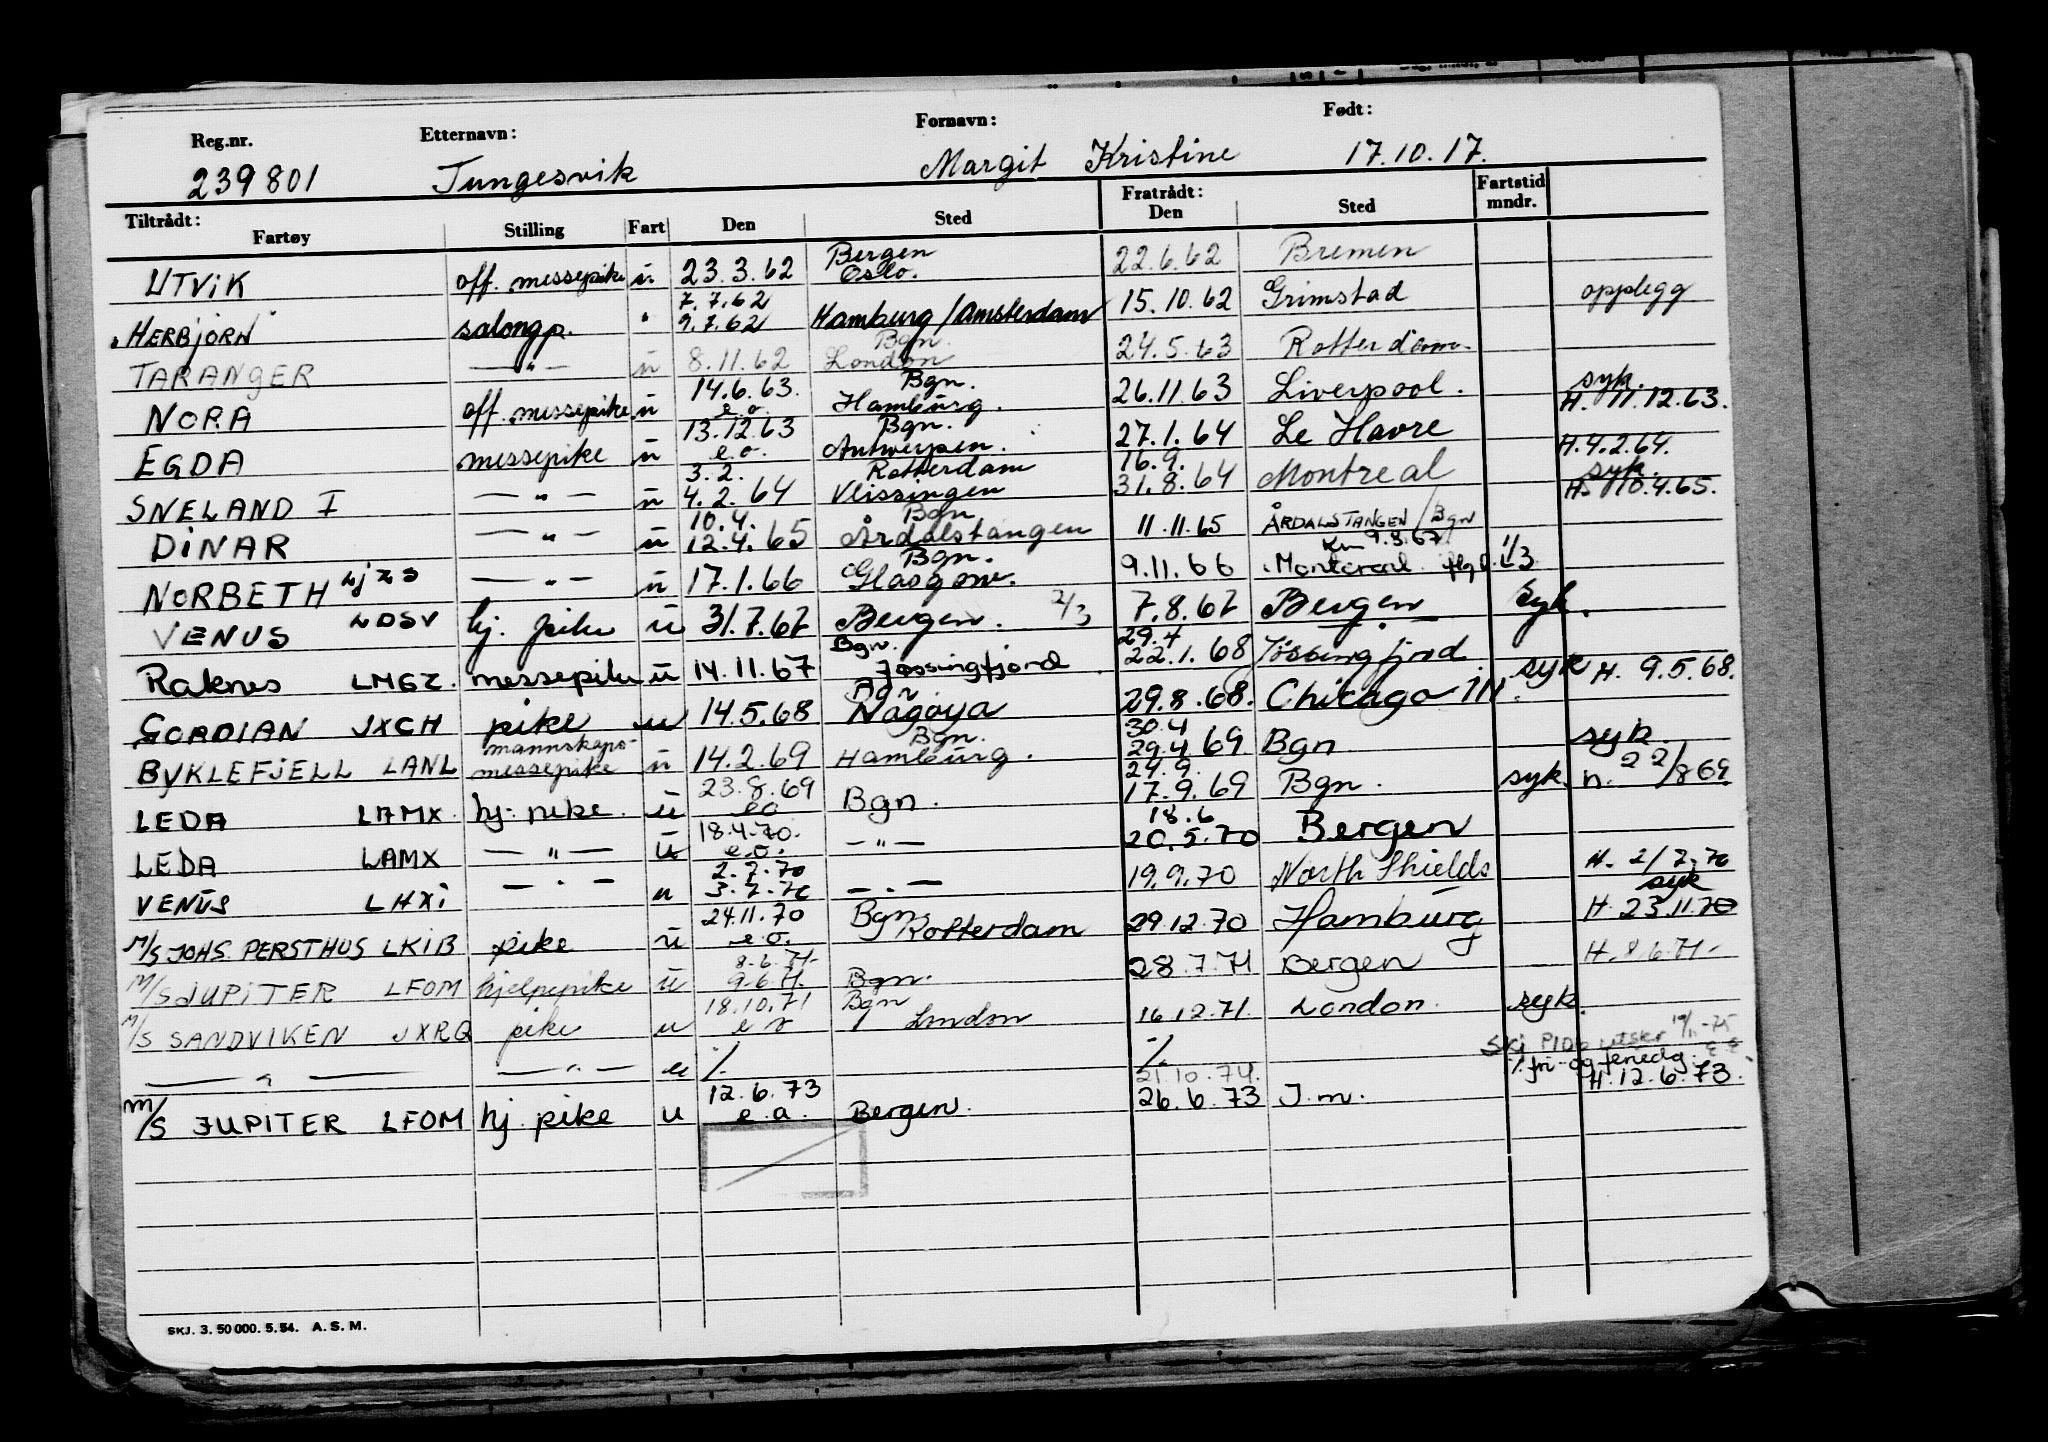 Reg.nr. Etternavn: Fornavn: Født:
239801 Tungesvik Margit Kristine 17.10.17.
Tiltrådt: Fratrådt: Fartstid
Fartøy Stilling Fart Den Sted Den Sted mndr.
UTVIK off. messepike u 23.3.62 Bergen Oslo. 22.6.62 Bremen
HERBJØRN salongp. " 7.7.62 9.7.62 Hamburg/Amsterdam 15.10.62 Grimstad opplegg
TARANGER — " — u 8.11.62 Bgn. London 24.5.63 Rotterdam.
NORA off. messepike u 14.6.63. e.o. Bgn. Hamburg. 26.11.63 Liverpool. syk. H. 11.12.63.
EGDA messepike u 13.12.63 e.o. Bgn. Antwerpen. 27.1.64 Le Havre H.4.2.64.
SNELAND I — " — u 3.2. 4.2.64 Rotterdam Vlissingen 16.9. 31.8.64 Montreal syk. H. 10.4.65.
DINAR — " — u 10.4. 12.4.65 Bgn Årdalstangen 11.11.65 ÅRDALSTANGEN/Bgn
NORBETH LJZS — " — u 17.1.66 Bgn. Glasgow. 9.11.66 Montreal 1/3
VENUS LDSV hj. pike u 31.7.67 Bergen. 2/3 7.8.67 Bergen syk.
Raknes LMGZ. messepike u 14.11.67 Bgn. Jøssingfjord 29.4 22.1.68 Jøssingfjord syk H. 9.5.68.
GORDIAN JXCH pike u 14.5.68 Bgn Nagoya 29.8.68. Chichgo Ill.
BYKLEFJELL LANL mannskaps-messepike u 14.2.69 Bgn. Hamburg. 30.4 29.4 69 Bgn syk.
LEDA LAMX hj. pike. u 23.8.69 eo Bgn. 24.9. 17.9.69 Bgn. syk. h. 22/8 69
LEDA LAMX — " — u 18.4.70. e.o. — " — 18.6 20.5.70 Bergen
VENUS LHXI — " — u 2.7.70 3.7.70 — " — 19.9.70 North Shields H. 2/7.70
M/S JOHS. PERSTHUS LKIB pike u 24.11.70 e.o. Bgn. Rotterdam 29.12.70 Hamburg syk H. 23.11.70
M/S JUPITER LFOM hjelpepike u 8.6.71. 9.6.71. Bgn. 28.7.71 Bergen H. 8.6.71.
M/S SANDVIKEN JXRQ pike u 18.10.71 Bgn London 16.12.71. London. syk.
— " — — " — u ./. ./. 21.10.74. SKJ utskr 19/11-75 ./. fri- og
M/S JUPITER LFOM hj. pike u 12.6.73 e.a. Bergen. 26.6.73 I.m. H. 12.6.73.
SKJ. 3. 50 000. 5. 54. A. S. M.